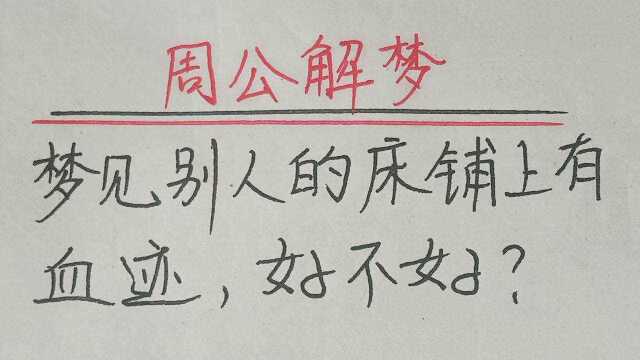 周公解梦
梦见别人的床铺上有
血迹，好不好？